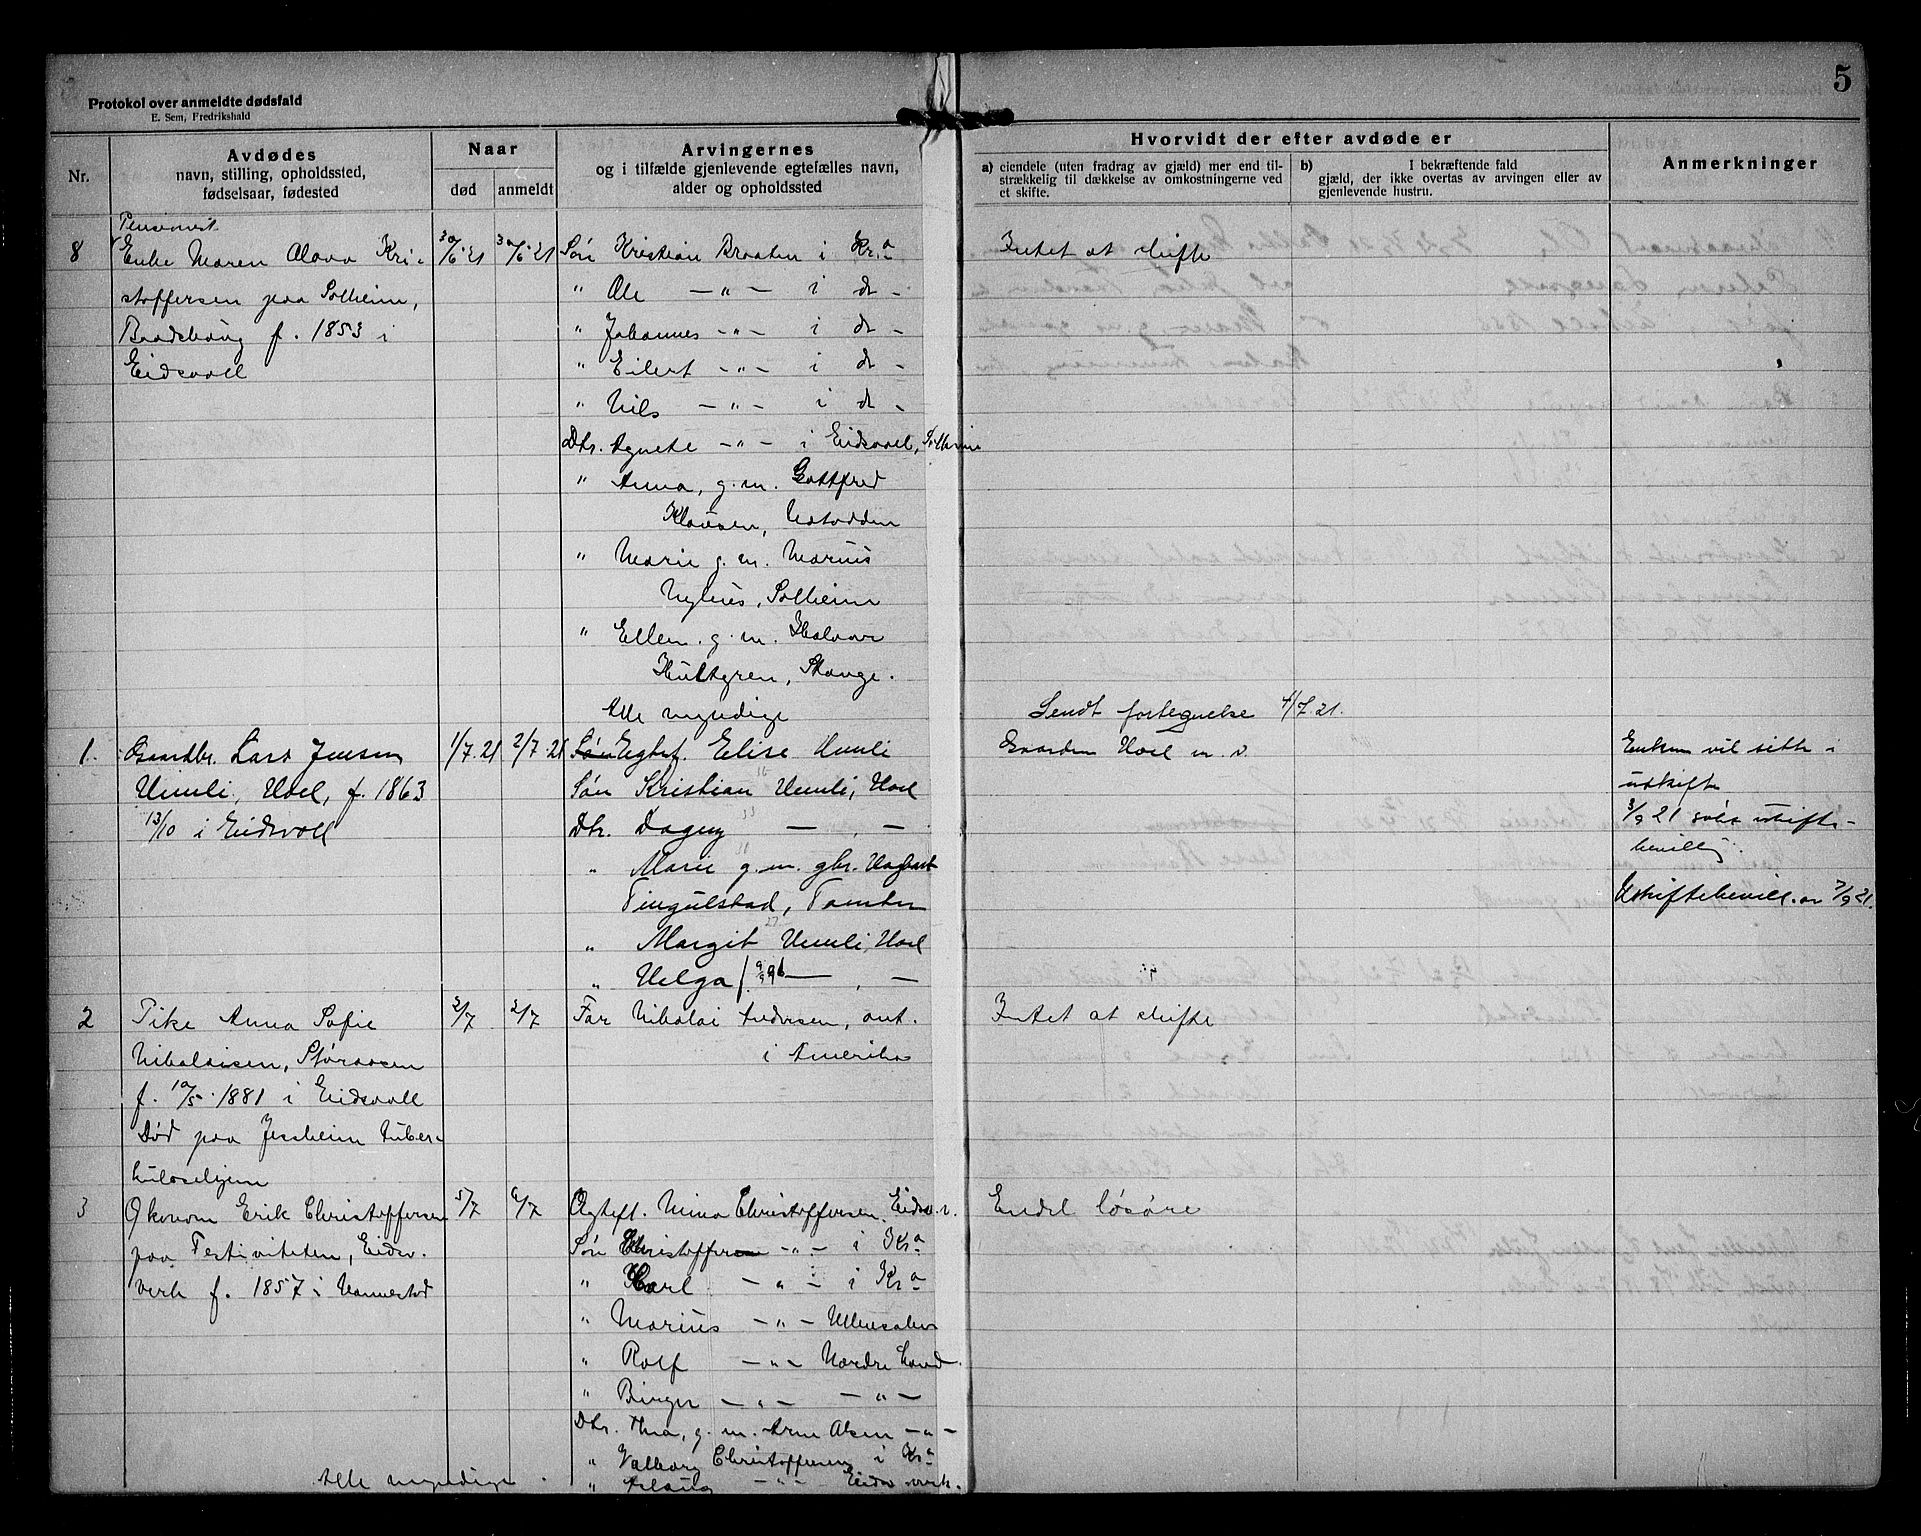 5
Protokol over anmeldte dødsfald
E. Sem, Fredrikshald
Nr.
Avdødes
navn, stilling, opholdssted,
fødselsaar, fødested
Naar
død
anmeldt
Arvingernes
og i tilfælde gjenlevende egtefælles navn,
alder og opholdssted
Hvorvidt der efter avdøde er
a) eiendele (uten fradrag av gjæld) mer end til-
strækkelig til dækkelse av omkostningerne ved
et skifte.
b) I bekræftende fald
gjæld, der ikke overtas av arvingen eller av
gjenlevende hustru.
Anmerkninger
Pensionist
8 Enke Maren Olava Kri-
stoffersen paa Solheim,
Baadshaug f. 1853 i
Eidsvoll
30/6.21 30/6.21
Søn Kristian Braaten i Kr.a
" Ole — " — i do -
" Johannes - " - i do -
" Eilert - " - i do -
" Nils — " — i do -
Dtr. Agnete - " - i Eidsvoll, Solheim
" Anna, g.m. Gottfred
Klausen, Notodden
" Marie g.m. Marius
Nyhus, Solheim
" Ellen g.m. Halvor
Hultgren, Stange.
Alle myndige
Intet at skifte
1. Gaardbr. Lars Jensen
Humli, Hoel, f. 1863
13/10 i Eidsvoll
1/7.21 2/7.21
Søn Egtef. Elise Humli
Søn Kristian Humli, Hoel
Dtr. Dagny — , —
" Marie g.m. gbr. Hagbart
Tingulstad, Tomter
" Margit Humli, Hoel
" Helga f. 9/9 96 — , —
Sendt fortegnelse 4/7.21.
Gaarden Hoel m.v.
Enken vil sitte i
uskifte
3/9 21 søkt uskifte-
bevillg.
Uskiftebevill. av 7/9 21.
2 Pike Anna Sofie
Nikolaisen, Støraasen
f. 10/5.1881 i Eidsvoll
Død paa Jessheim tuber-
kulosehjem
2/7 2/7
Far Nikolai Andersen, ant.
i Amerika
Intet at skifte
3 Økonom Erik Christoffersen
paa Festiviteten, Eidsv.
verk f. 1857 i Nannestad
5/7 6/7
Ægtef. Mina Christoffersen, Eidsv.v.
Søn Christoffer - " - i Kr.a
" Karl — " — i Kr.a
" Marius — " — Ullensaker
" Rolf — " — Nordre Land
" Birger — " — — " —
Dtr. Thea, g.m. Arne Olsen - " -
" Valborg Christoffersen i Kr.a
" Aslaug — " — Eidsv. verk.
Alle myndige
Endel løsøre